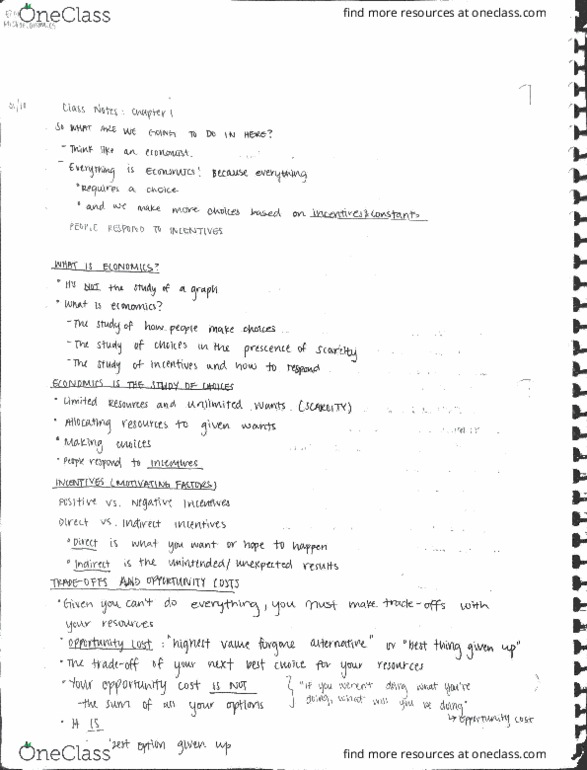 OneClass
find more resources at oneclass.com
01/18
Class Notes: Chapter 1
SO WHAT ARE WE GOING TO DO IN HERE?
- Think like an economist.
- Everything is ECONOMICS! Because everything
* Requires a choice
* and we make more choices based on incentives & constants
PEOPLE RESPOND TO INCENTIVES
WHAT IS ECONOMICS?
* It's NOT the study of a graph
* What is economics?
- The study of how people make choices
- The study of choices in the prescence of scarcity
- The study of incentives and how to respond
ECONOMICS IS THE STUDY OF CHOICES
* Limited Resources and unlimited wants. (SCARCITY)
* Allocating resources to given wants
* Making choices
* People respond to incentives
INCENTIVES (MOTIVATING FACTORS)
Positive vs. Negative Incentives
Direct vs. Indirect incentives
* Direct is what you want or hope to happen
* Indirect is the unintended/unexpected results
TRADE-OFFS AND OPPORTUNITY COSTS
* Given you can't do everything, you must make trade-offs with
your resources
* Opportunity Cost: "highest value forgone alternative" or "best thing given up"
* The trade-off of your next best choice for your resources
* Your opportunity cost IS NOT
- the sum of all your options
"if you weren't doing what you're
doing, what will you be doing"
↳ opportunity cost
* It IS
best option given up
OneClass
find more resources at oneclass.com